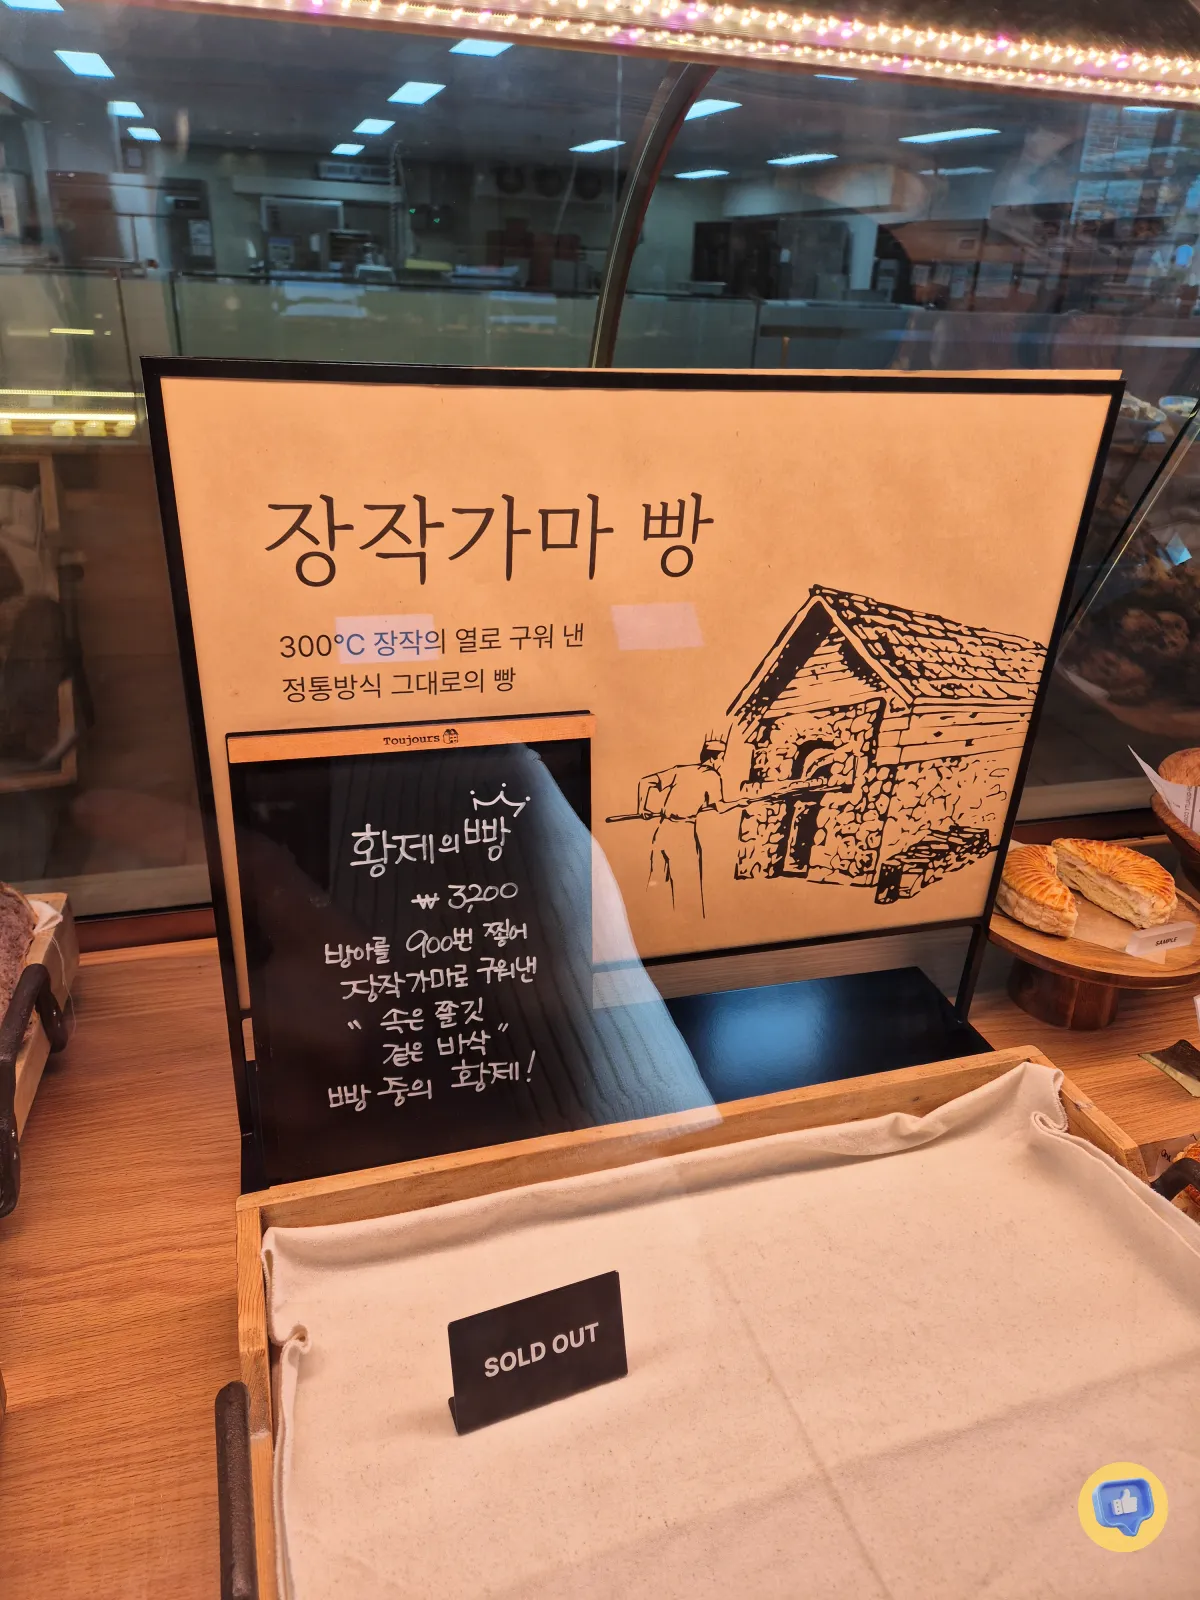 장작가마 빵
300°C 장작의 열로 구워 낸
정통방식 그대로의 빵
Toujours
황제의빵
₩ 3,200
방아를 900번 찧어
장작가마로 구워낸
“ 속은 쫄깃
겉은 바삭 ”
빵 중의 황제!
SAMPLE
SOLD OUT